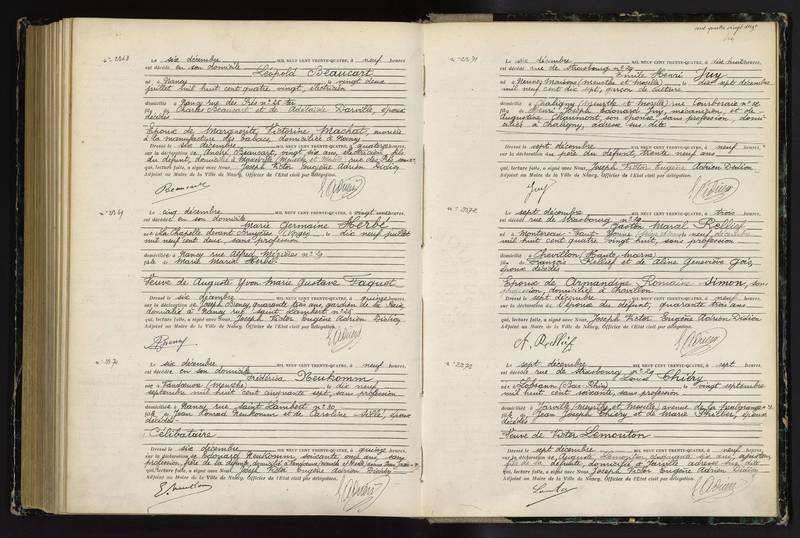 n° 2568
Le six décembre MIL NEUF CENT TRENTE-QUATRE, à neuf heures,
est décédé en son domicile
Léopold Beaucart
né à Nancy le vingt deux
juillet mil huit cent quatre vingt, électricien
domicilié à Nancy rue des Prés n° 25 ter
fils de Charles Beaucart et de Adélaïde Darville, époux
décédés
Epoux de Marguerite Victorine Machat, ouvrière
à la manufacture des tabacs, domiciliée à Nancy
Dressé le six décembre quatorze heures
sur la déclaration de André Beaucart, vingt six ans, électricien, fils
du défunt, domicilié à Maxéville (Meurthe et Moselle) rue des Prés
qui, lecture faite, a signé avec Nous, Joseph Victor Eugène Adrien Didion
Adjoint au Maire de la Ville de Nancy, Officier de l'Etat civil par délégation.
Beaucart
Adrien
n° 2569
Le cinq décembre MIL NEUF CENT TRENTE-QUATRE, à vingt heures,
est décédée en son domicile
Marie Germaine Herbé
née à La Chapelle devant Bruyères (Vosges) le dix neuf juillet
mil neuf cent deux, sans profession
domiciliée à Nancy rue Alfred Mézières n°
fille de Marie Herbé
Veuve de Auguste Yvon Marie Gustave Taquet
Dressé le six décembre quinze heures
sur la déclaration de Joseph Nancy, quarante trois ans, gardien de la Paix
domicilié à Nancy rue Saint Lambert n° 25
qui, lecture faite, a signé avec Nous, Joseph Victor Eugène Adrien Didion
Adjoint au Maire de la Ville de Nancy, Officier de l'Etat civil par délégation.
Nancy
Adrien
n° 2570
Le six décembre MIL NEUF CENT TRENTE-QUATRE, à neuf heures,
est décédée en son domicile
Frédérica Neukomm
née à Vandœuvre (Meurthe) le dix neuf
septembre mil huit cent cinquante sept, sans profession
domiciliée à Nancy rue Saint Lambert n° 30
fille de Jean Conrad Neukomm et de Caroline Sillé, époux
décédés
Célibataire
Dressé le six décembre quinze heures
sur la déclaration de Edouard Neukomm soixante onze ans, sans
profession, frère de la défunte, domicilié à
qui, lecture faite, a signé avec Nous, Joseph Victor Eugène Adrien Didion
Adjoint au Maire de la Ville de Nancy, Officier de l'Etat civil par délégation.
Adrien
cent quatre vingt
n° 2571
Le six décembre MIL NEUF CENT TRENTE-QUATRE, à dix huit heures,
est décédé rue de Strasbourg n° 29
Emile Henri Juy
né à Neuves Maisons (Meurthe et Moselle) le dix sept décembre
mil neuf cent dix sept, garçon de culture
domicilié à Chaligny (Meurthe et Moselle) rue
fils de Henri Joseph Edouard Juy, mécanicien, et de
Augustine Chaumont, son épouse, sans profession, domi-
ciliés à Chaligny, adresse sus dite
Dressé le sept décembre neuf heures
sur la déclaration du père du défunt, trente neuf ans
qui, lecture faite, a signé avec Nous, Joseph Victor Eugène Adrien Didion
Adjoint au Maire de la Ville de Nancy, Officier de l'Etat civil par délégation.
Juy
Adrien
n° 2572
Le sept décembre MIL NEUF CENT TRENTE-QUATRE, à trois heures,
est décédé rue de Strasbourg n° 29
Gaston Marcel Rollief
né à Montereau-Faut-Yonne (Seine et Marne) le neuf décembre
mil huit cent quatre vingt huit, sans profession
domicilié à Chevillon (Haute Marne)
fils de François Rollief et de Aline Geneviève
époux décédés
Epoux de Armandine Romaine Simon, sans
profession, domiciliée à Chevillon
Dressé le sept décembre neuf heures
sur la déclaration de l'épouse du défunt, quarante trois ans
qui, lecture faite, a signé avec Nous, Joseph Victor Eugène Adrien Didion
Adjoint au Maire de la Ville de Nancy, Officier de l'Etat civil par délégation.
A. Rollief
Adrien
n° 2573
Le sept décembre MIL NEUF CENT TRENTE-QUATRE, à sept heures,
est décédée rue de Strasbourg n° 29
Louise Thiéry
née à Lobsann (Bas-Rhin) le vingt septembre
mil huit cent soixante, sans profession
domiciliée à Jarville (Meurthe et Moselle) avenue de la Malgrange
fille de Jean Joseph Thiéry et de Marie Philber, époux
décédés
Veuve de Victor Lemonton
Dressé le sept décembre neuf heures
sur la déclaration de Auguste Lemonton cinquante six ans, ajusteur
fils de la défunte, domicilié à Jarville adresse sus dite
qui, lecture faite, a signé avec Nous, Joseph Victor Eugène Adrien Didion
Adjoint au Maire de la Ville de Nancy, Officier de l'Etat civil par délégation.
Adrien